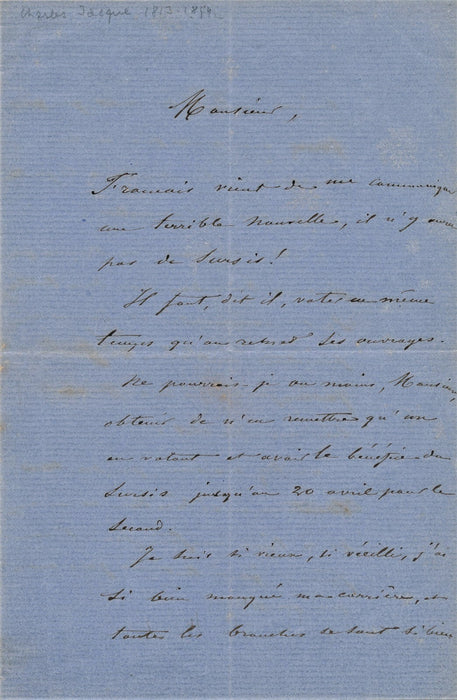 Charles Jacque 1813-1894
Monsieur,
Français vient de me communiquer
une terrible nouvelle, il n'y aura
pas de sursis!
Il faut, dit il, voter en même
temps qu'on rend ses ouvrages.
Ne pourrais je au moins, Monsieur,
obtenir de n'en remettre qu'un
en votant et avoir le bénéfice du
sursis jusqu'au 20 avril pour le
second.
Je suis si vieux, si vieilli, j'ai
si bien manqué ma carrière, et
toutes les branches se sont si bien